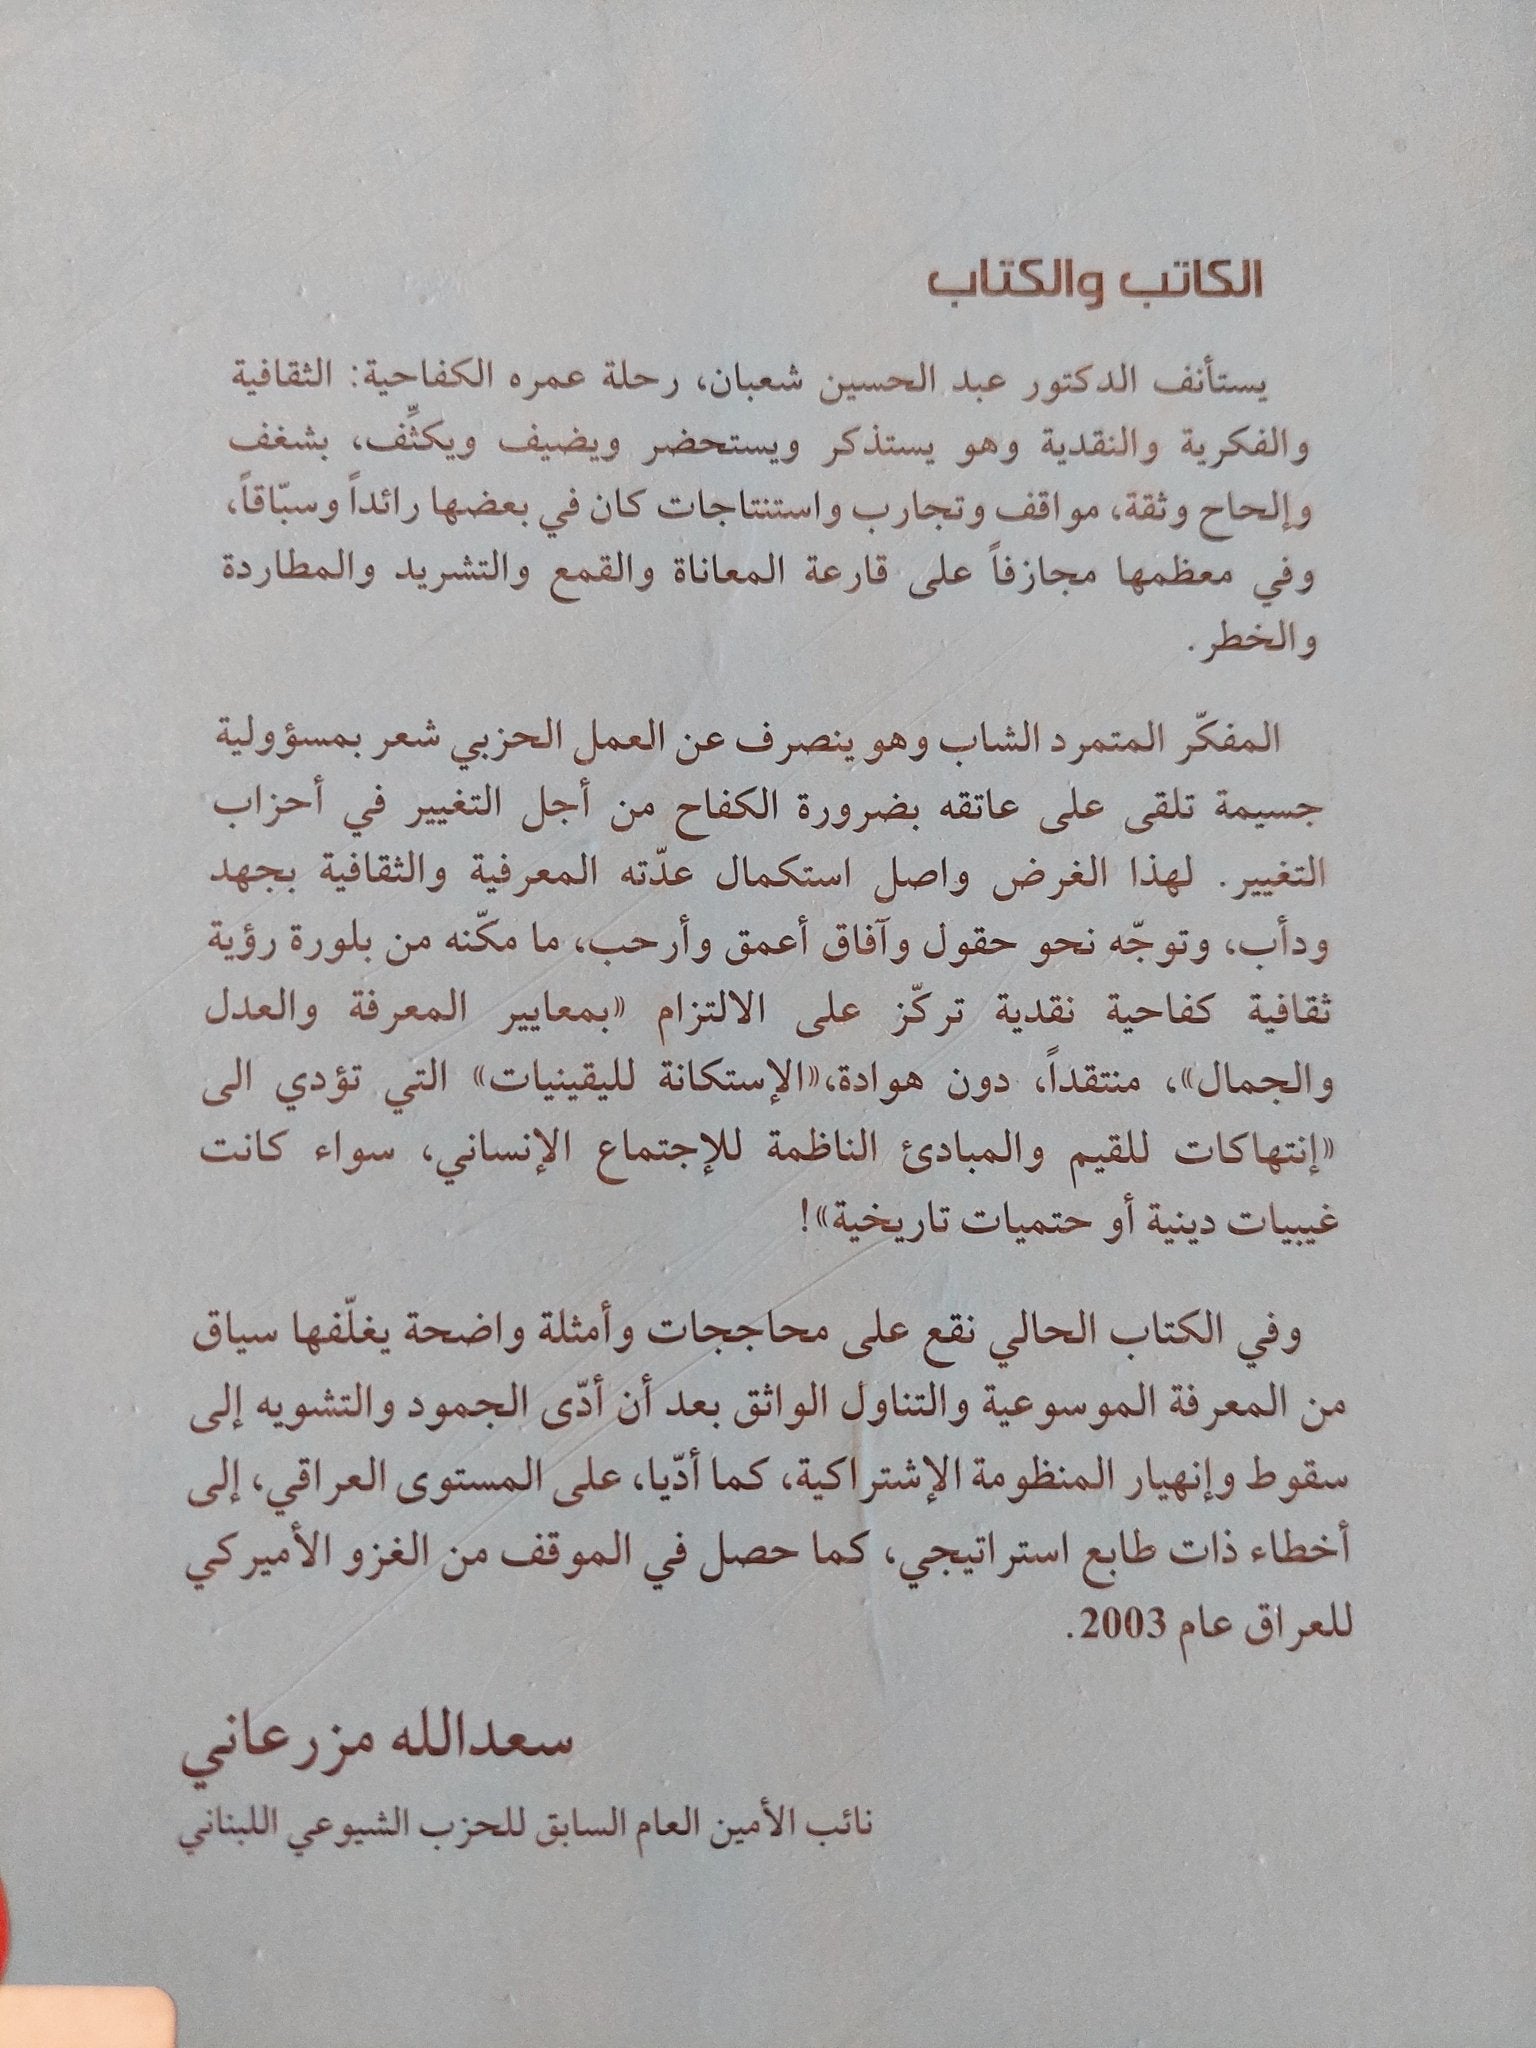 الكاتب والكتاب
يستأنف الدكتور عبد الحسين شعبان، رحلة عمره الكفاحية: الثقافية
والفكرية والنقدية وهو يستذكر ويستحضر ويضيف ويكثِّف، بشغف
وإلحاح وثقة، مواقف وتجارب واستنتاجات كان في بعضها رائداً وسبّاقاً،
وفي معظمها مجازفاً على قارعة المعاناة والقمع والتشريد والمطاردة
والخطر.
المفكّر المتمرد الشاب وهو ينصرف عن العمل الحزبي شعر بمسؤولية
جسيمة تلقى على عاتقه بضرورة الكفاح من أجل التغيير في أحزاب
التغيير. لهذا الغرض واصل استكمال عدّته المعرفية والثقافية بجهد
ودأب، وتوجّه نحو حقول وآفاق أعمق وأرحب، ما مكّنه من بلورة رؤية
ثقافية كفاحية نقدية تركّز على الالتزام «بمعايير المعرفة والعدل
والجمال»، منتقداً، دون هوادة،«الإستكانة لليقينيات» التي تؤدي الى
«إنتهاكات للقيم والمبادئ الناظمة للإجتماع الإنساني، سواء كانت
غيبيات دينية أو حتميات تاريخية»!
وفي الكتاب الحالي نقع على محاججات وأمثلة واضحة يغلّفها سياق
من المعرفة الموسوعية والتناول الواثق بعد أن أدّى الجمود والتشويه إلى
سقوط وإنهيار المنظومة الإشتراكية، كما أدّيا، على المستوى العراقي، إلى
أخطاء ذات طابع استراتيجي، كما حصل في الموقف من الغزو الأميركي
للعراق عام 2003.
سعدالله مزرعاني
نائب الأمين العام السابق للحزب الشيوعي اللبناني